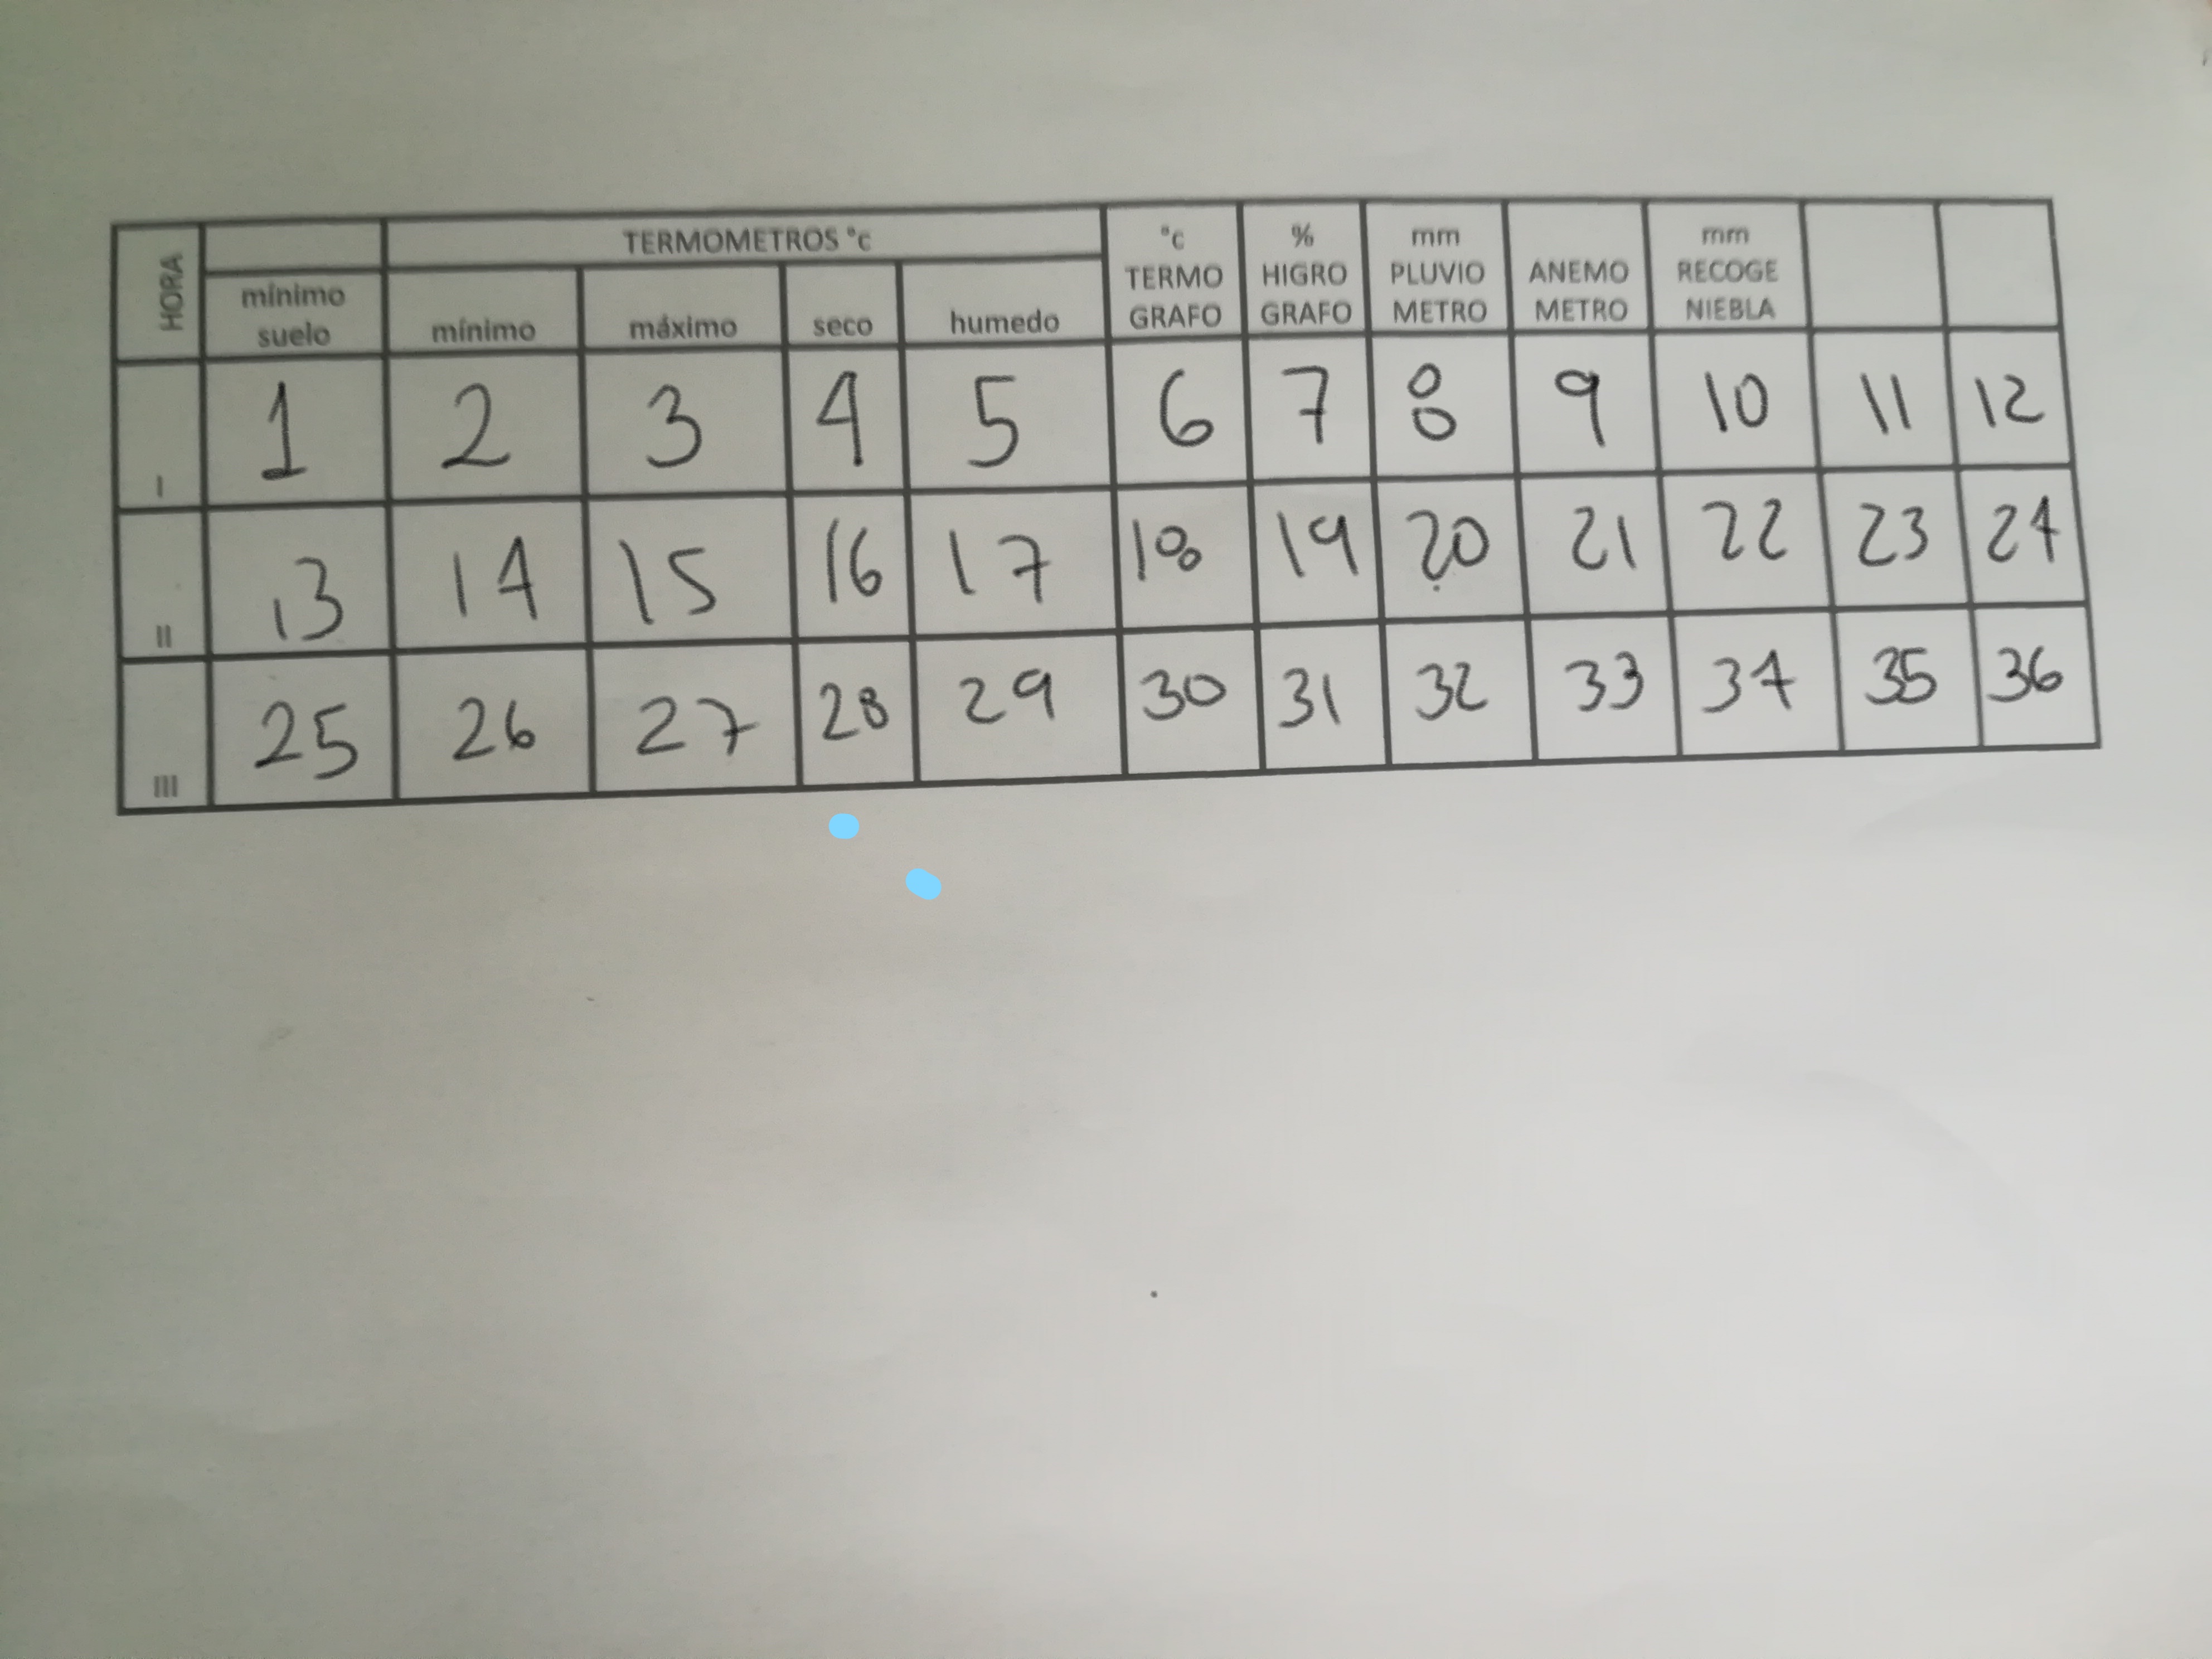 HORA TERMOMETROS °c °c TERMO GRAFO % HIGRO GRAFO mm PLUVIO METRO ANEMO METRO mm RECOGE NIEBLA
mínimo suelo mínimo máximo seco humedo
I 1 2 3 4 5 6 7 8 9 10 11 12
II 13 14 15 16 17 18 19 20 21 22 23 24
III 25 26 27 28 29 30 31 32 33 34 35 36